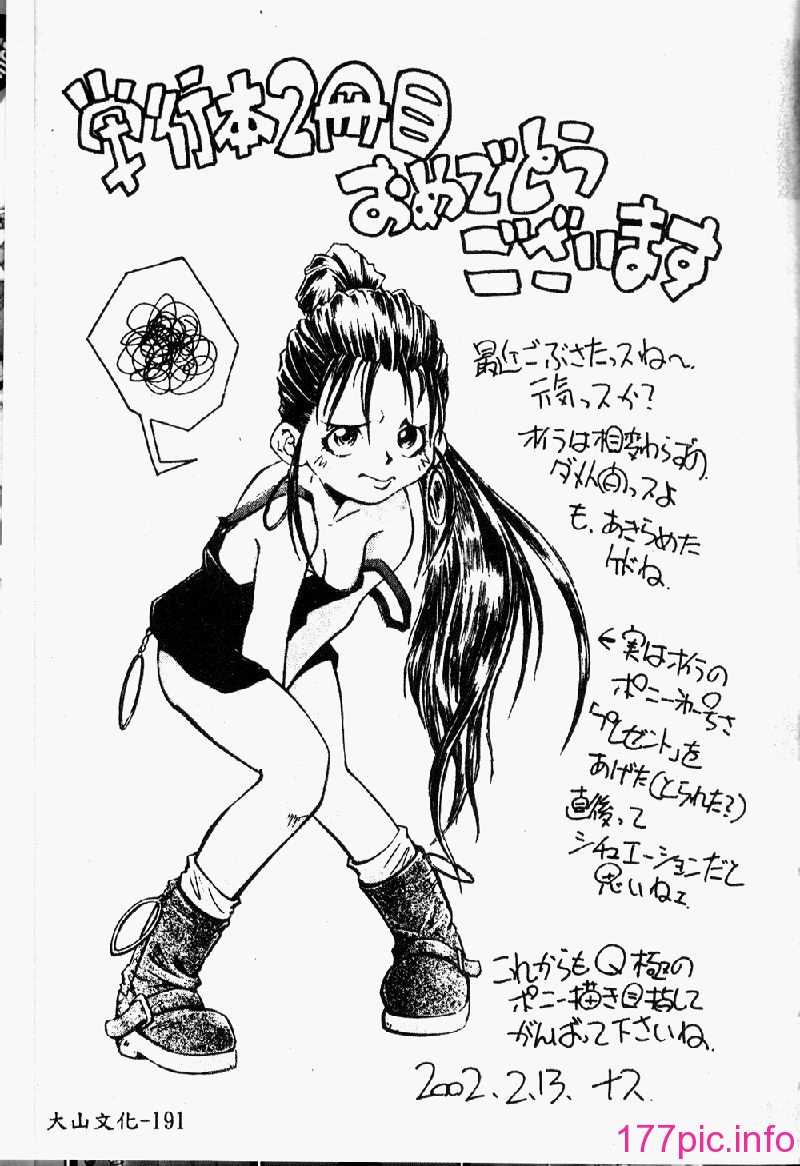 単行本2冊目
おめでとう
ございます
最近ごぶさたっスね〜.
元気っスか?
オイラは相変わらずの
ダメ人間っスよ
も、あきらめた
ケドね.
←実はオイラの
ポニー
「プレゼント」を
あげた(とられた?)
直後って
シチュエーションだと
思いねェ
これからも Q極の
ポニー描き目指して
がんばって下さいね.
2002.2.13. ナス
大山文化-191
177pic.info